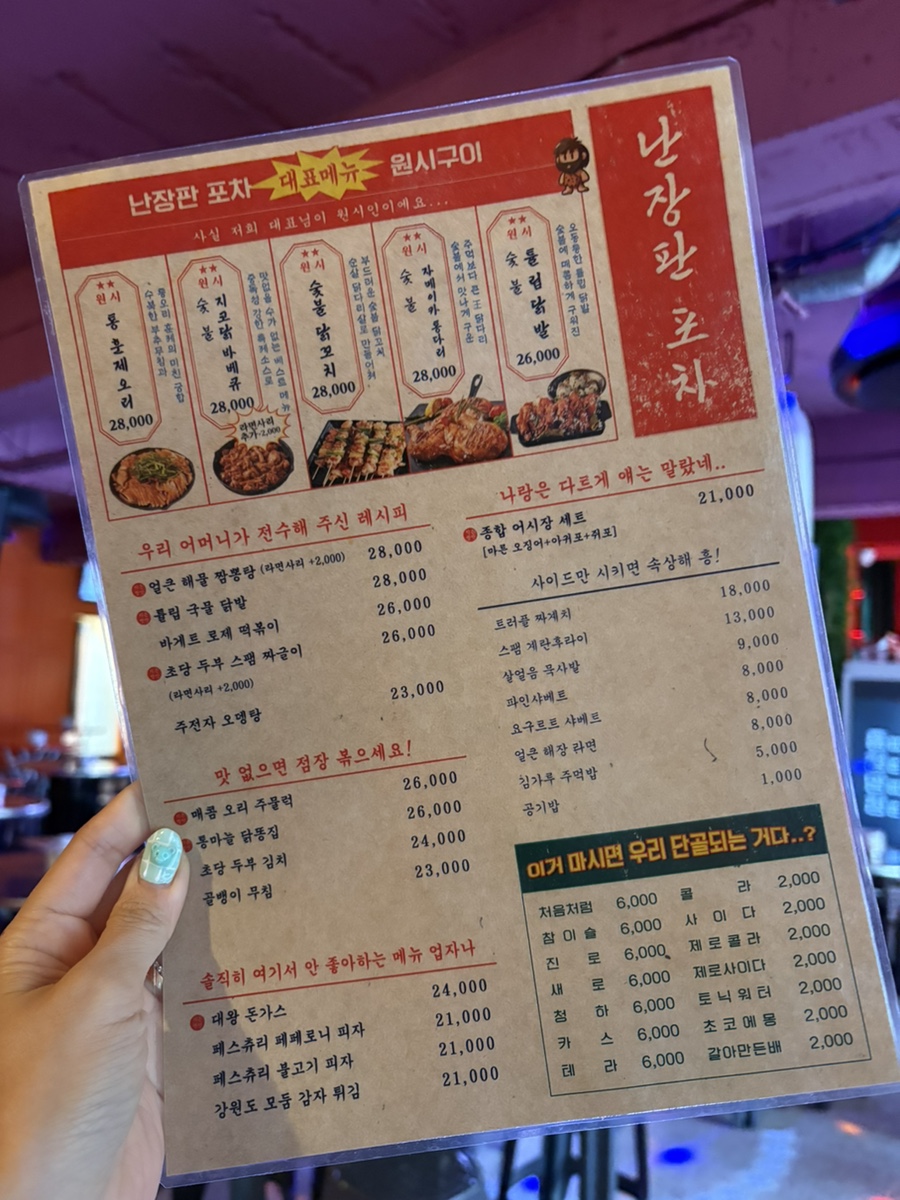 난장판 포차 대표메뉴 원시구이
사실 저희 대표님이 원시인이에요...
난장판포차
원시
숯불
통훈제오리
훈제의 미친 궁합
수북한 부추무침과
28,000
원시
숯불
지코닭바베큐
맛없을 수가 없는 베스트 메뉴
중독성 강한 특제소스로
28,000
라면사리
추가+2,000
원시
숯불닭꼬치
부드러운 숯불 닭꼬치
순살 닭다리살로 만들어져
28,000
원시
숯불
자메이카통다리
주먹보다 큰 王 닭다리
숯불에서 맛나게 구운
28,000
원시
숯불
튤립닭발
오동통한 튤립 닭발
숯불에 매콤하게 구워진
26,000
우리 어머니가 전수해 주신 레시피
얼큰 해물 짬뽕탕 (라면사리 +2,000) 28,000
튤립 국물 닭발 28,000
바게트 로제 떡볶이 26,000
초당 두부 스팸 짜글이 26,000
(라면사리 +2,000)
주전자 오뎅탕 23,000
맛 없으면 점장 볶으세요!
매콤 오리 주물럭 26,000
통마늘 닭똥집 26,000
초당 두부 김치 24,000
골뱅이 무침 23,000
솔직히 여기서 안 좋아하는 메뉴 업자나
대왕 돈가스 24,000
페스츄리 페페로니 피자 21,000
페스츄리 불고기 피자 21,000
강원도 모둠 감자 튀김 21,000
나랑은 다트게 얘는 말랐네..
종합 어시장 세트 21,000
[마른 오징어+아귀포+쥐포]
사이드만 시키면 속상해 흥!
트러플 짜계치 18,000
스팸 계란후라이 13,000
살얼음 묵사발 9,000
파인샤베트 8,000
요구르트 샤베트 8,000
얼큰 해장 라면 8,000
김가루 주먹밥 5,000
공기밥 1,000
이거 마시면 우리 단골되는 거다..?
처음처럼 6,000 콜라 2,000
참이슬 6,000 사이다 2,000
진로 6,000 제로콜라 2,000
새로 6,000 제로사이다 2,000
청하 6,000 토닉워터 2,000
카스 6,000 초코에몽 2,000
테라 6,000 갈아만든배 2,000